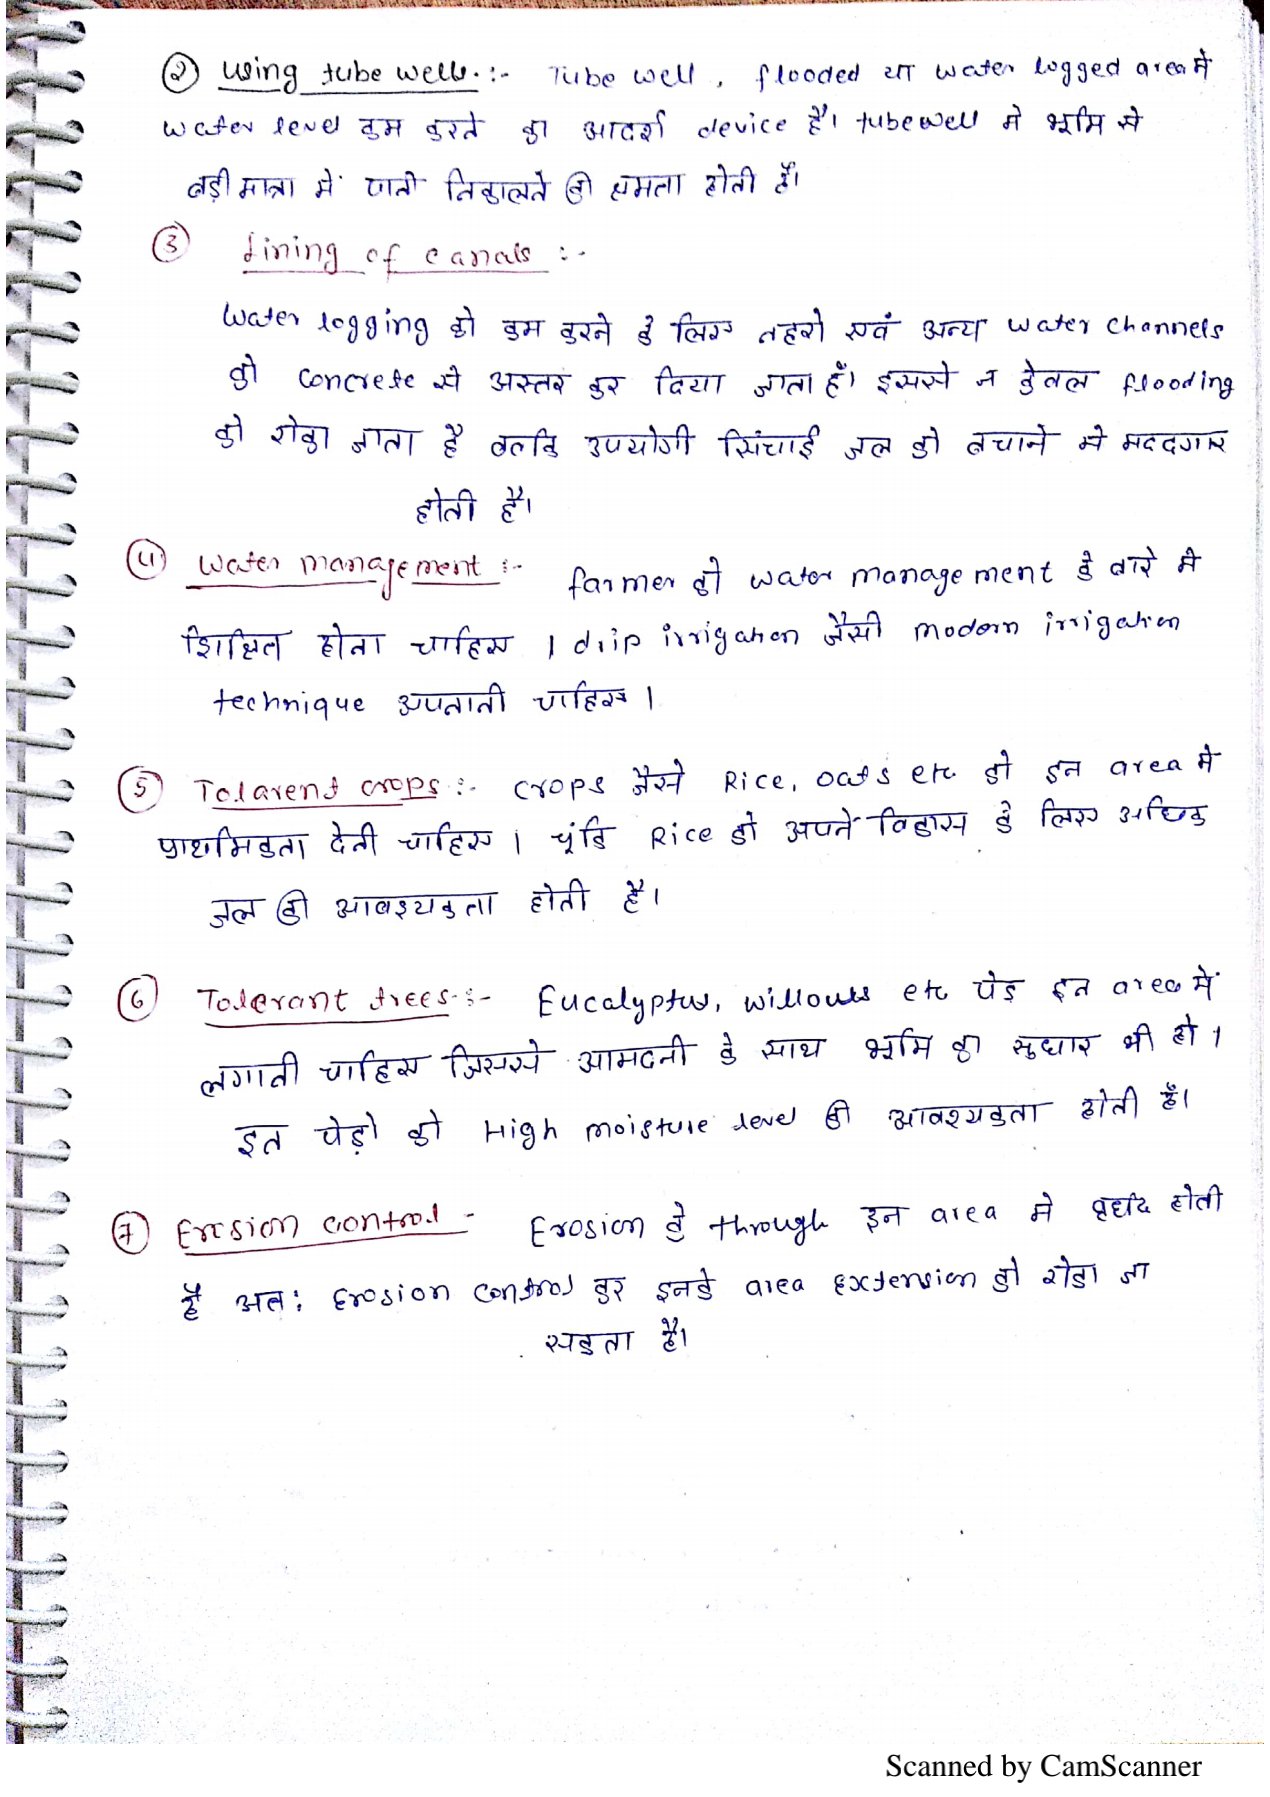 ② Using tube well :- Tube well, flooded या water logged area मे
water level कम करने का आदर्श device है। tubewell मे भूमि से
बड़ी मात्रा में पानी निकालने की क्षमता होती है।
③ Lining of canals :-
Water logging को कम करने के लिए नहरो एवं अन्य water channels
को concrete से अस्तर कर दिया जाता है। इससे न केवल flooding
को रोका जाता है बल्कि उपयोगी सिंचाई जल को बचाने मे मददगार
होती है।
④ Water management :- farmer को water management के बारे मे
शिक्षित होना चाहिए । drip irrigation जैसी modern irrigation
technique अपनानी चाहिए ।
⑤ Tolarent crops :- crops जैसे Rice, oats etc को इन area मे
प्राथमिकता देनी चाहिए । चूंकि Rice को अपने विकास के लिए अधिक
जल की आवश्यकता होती है।
⑥ Tolerant trees :- Eucalyptus, willows etc पेड़ इन area में
लगानी चाहिए जिससे आमदनी के साथ भूमि का सुधार भी हो ।
इन पेड़ो को High moisture level की आवश्यकता होती है।
⑦ Erosion control - Erosion के through इन area मे वृद्धि होती
है अतः Erosion control कर इनके area extension को रोका जा
सकता है।
Scanned by CamScanner